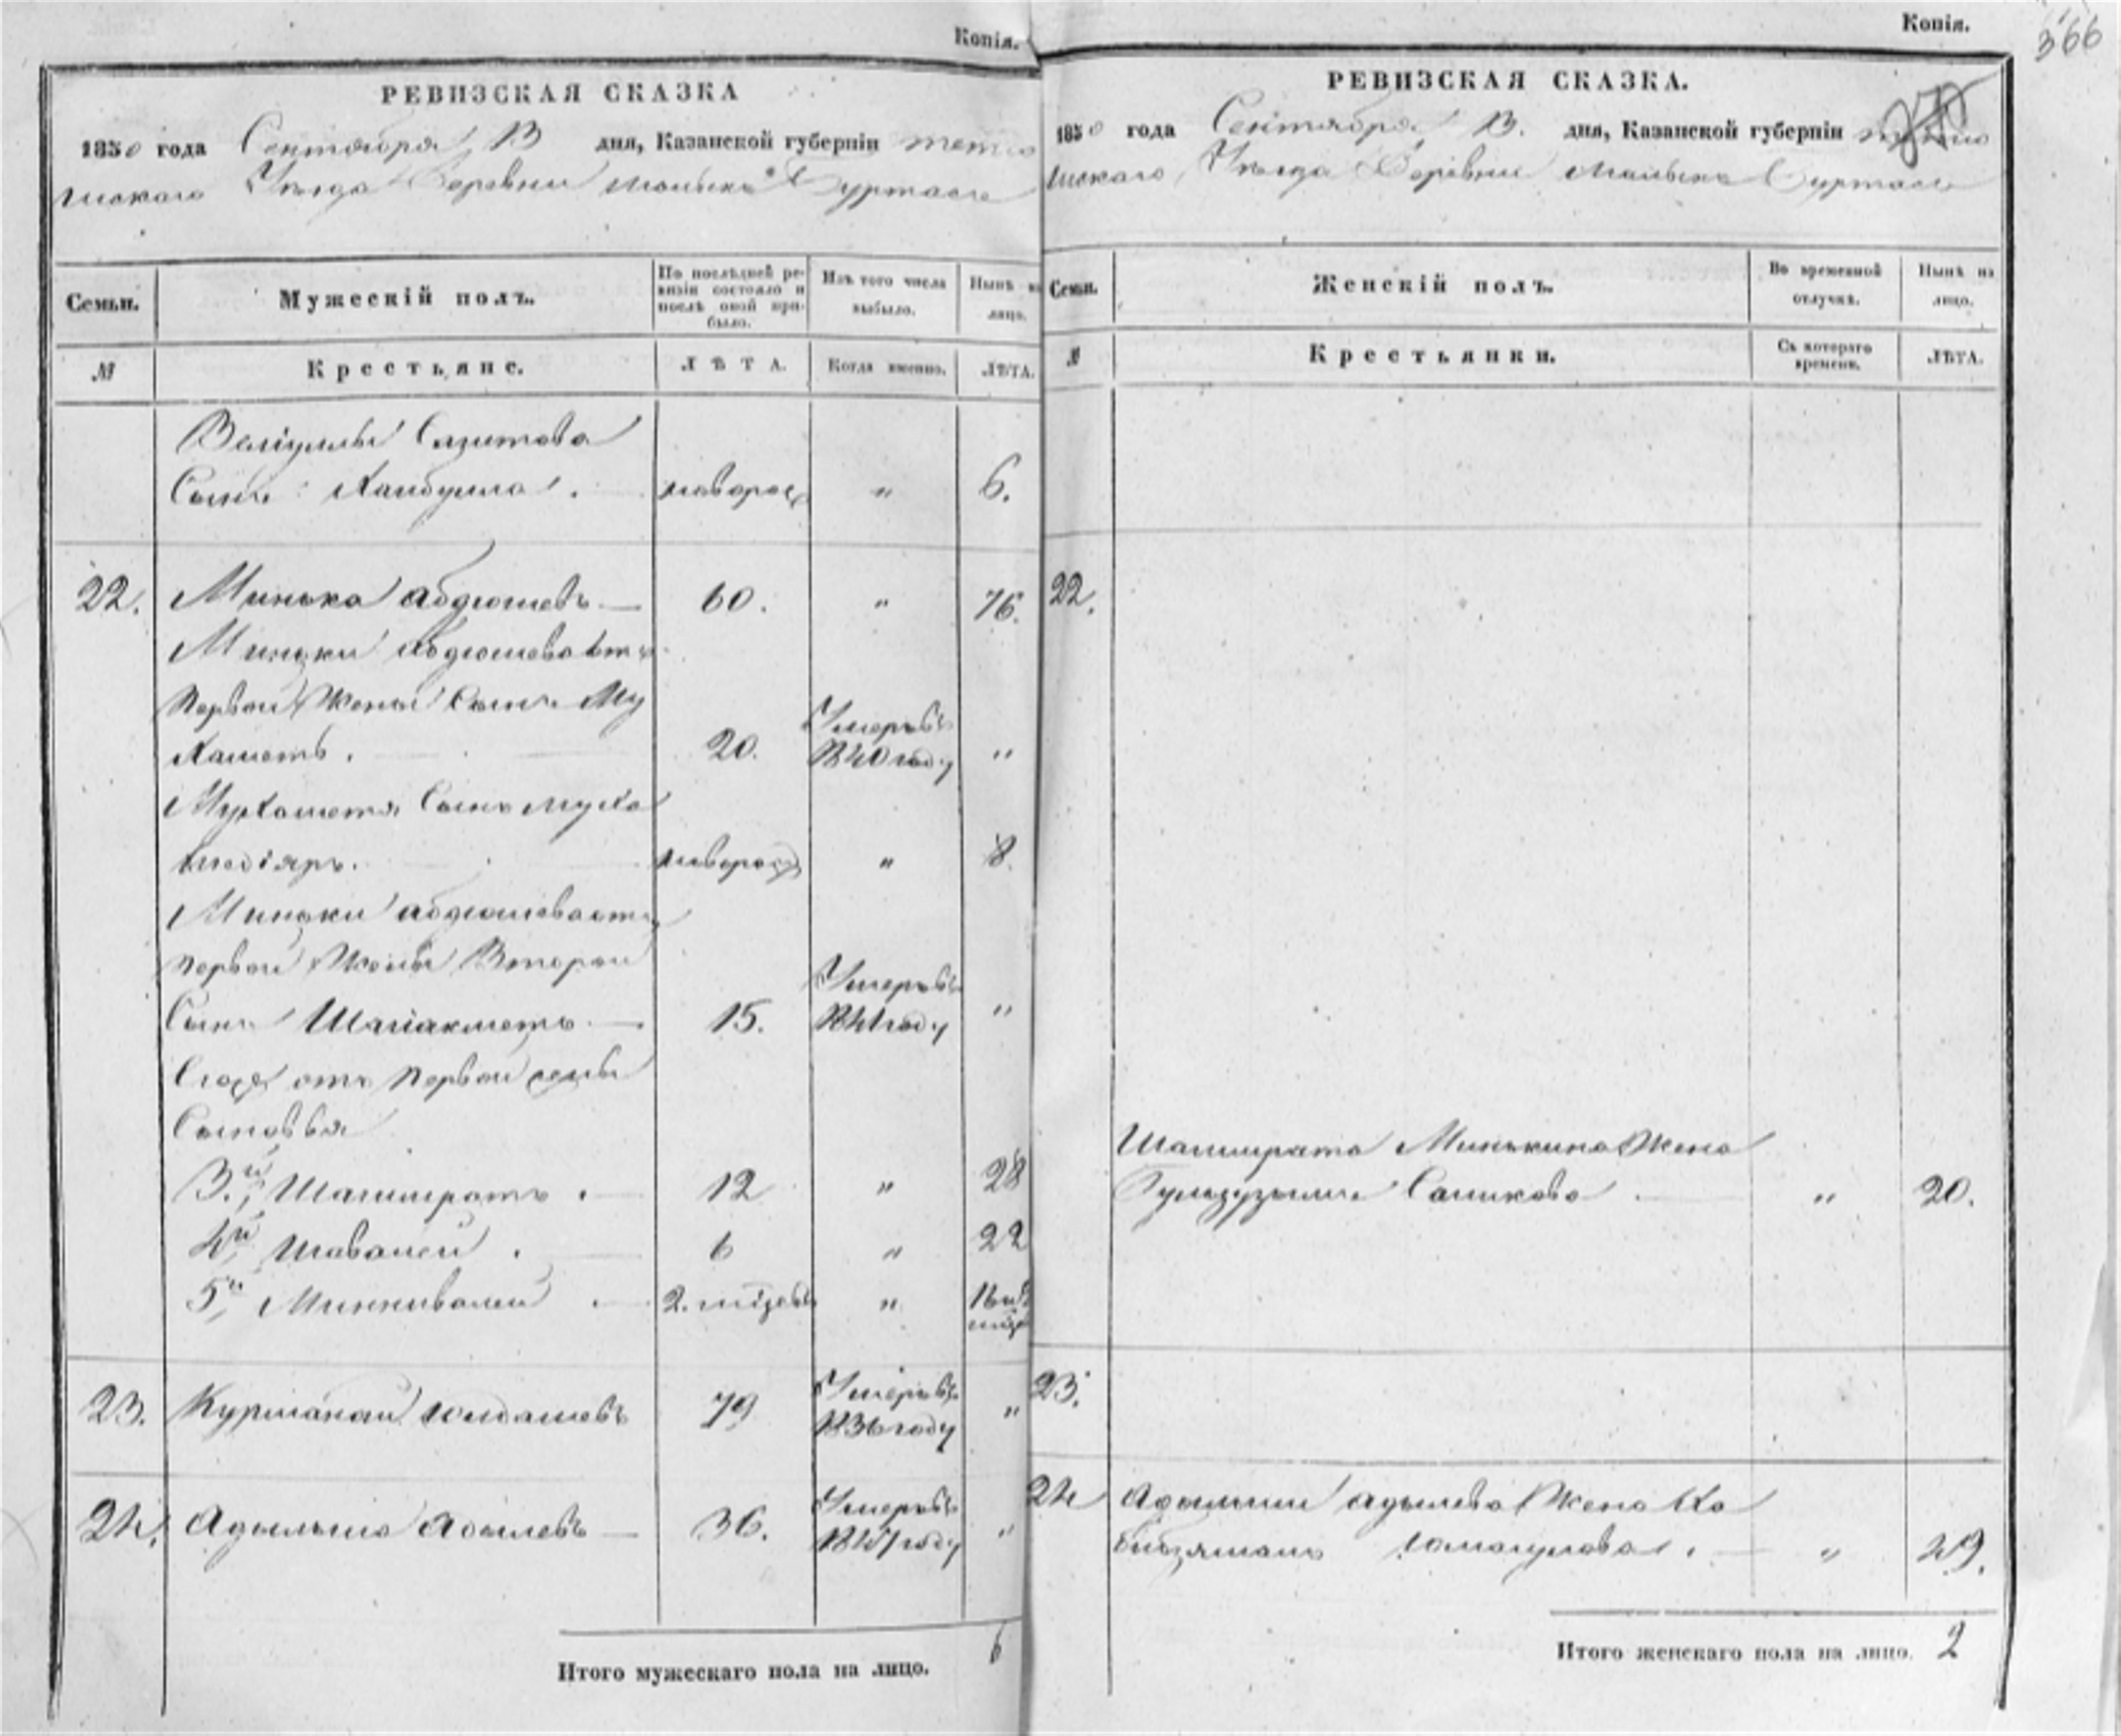 Копія.
РЕВИЗСКАЯ СКАЗКА
1850 года Сентября 13 дня, Казанской губерніи тетю
шскаго Уѣзда Деревни Буртасъ
Семьи.
Мужескій полъ.
По послѣдней ре-
визіи состояло и
послѣ оной при-
было.
Изъ того числа
выбыло.
Нынѣ на
лицо.
№
Крестьяне.
ЛѢТА.
Когда именно.
ЛѢТА.
Валіуллы Сагитова
Сынъ Хайбулла. новорож „ 6.
22. Минька абдюшевъ — 60. „ 76.
Миньки абдюшева отъ
первой Жены Сынъ Му
хаметъ. 20. Умеръ въ 1840 году „
Мухаметя Сынъ Муха
медіяръ. новорож „ 8.
Миньки абдюшева отъ
первой Жены Второй
Сынъ Шагіахметъ — 15. Умеръ въ 1841 году „
отъ первой жены
Сыновья
3й Шагимратъ. 12 „ 28
4й Шавалей. 6 „ 22
5й Миннивалей. 2. мѣсец „ 16 и 2 мѣс
23. Курманай юлдашевъ 79 Умеръ въ 1836 году „
24. Адыльша Адылевъ — 36. Умеръ въ году „
Итого мужескаго пола на лицо. 6
Копія.
366
РЕВИЗСКАЯ СКАЗКА.
1850 года Сентября 13. дня, Казанской губерніи тетю
шскаго Уѣзда Деревни Буртасъ
Семьи.
Женскій полъ.
Во временной
отлучкѣ.
Нынѣ на
лицо.
№
Крестьянки.
Съ котораго
времени.
ЛѢТА.
22.
Шагимрата Минькина Жена
Саликова. „ 20.
23.
24 Адыльши адылева Жена Ха
„ 49.
Итого женскаго пола на лицо. 2